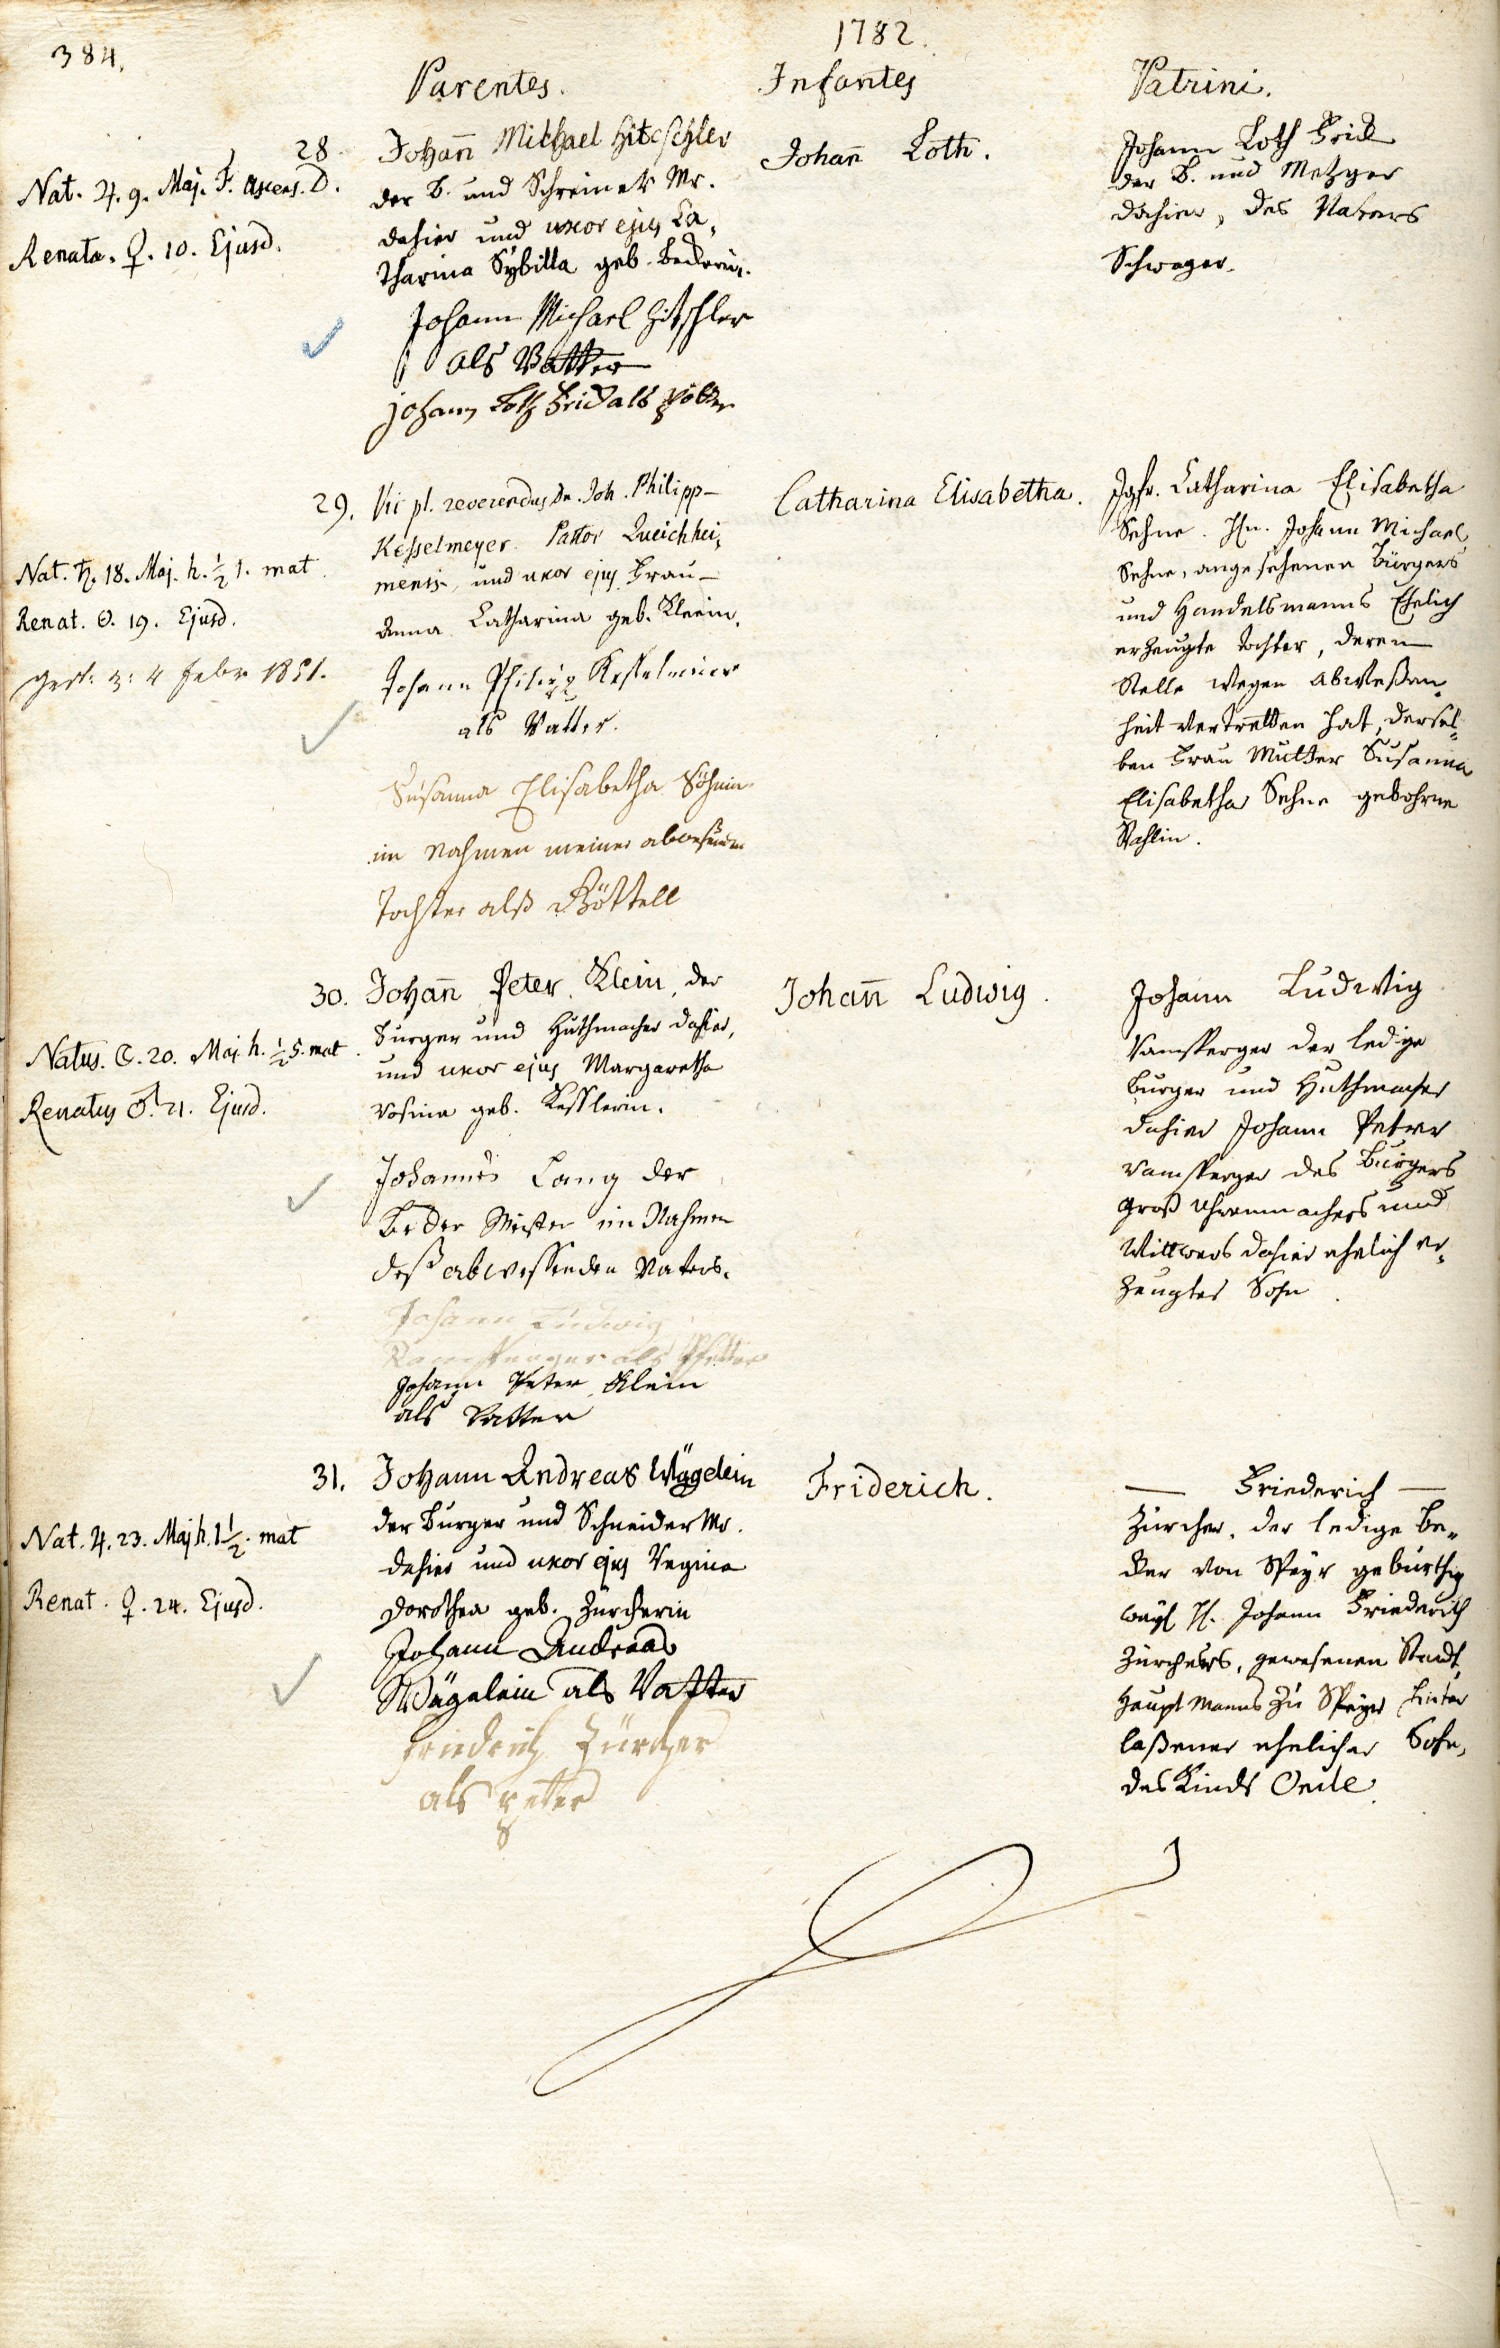 384.
1782.
Parentes.
Infantes
Patrini.
28
Nat. ♃. 9. Maj. F. Ascens. D.
Renata. ♀. 10. Ejusd.
Johan̅ Michael Hitschler
der B. und Schreiner Mr.
dahier und uxor ejus Ca,
tharina Sybilla geb. Beckerin.
Johann Michael Hitschler
als Vatter
Johann Loth Frick als
Johan̅ Loth.
Johann Loth Frick
der B. und Metzger
dahier, des Vaters
Schwager.
29.
Nat. ♄. 18. Maj. h. ½ 1. mat
Renat. ☉. 19. Ejusd.
gest. 4 Febr 1851.
Vir pl. reverendus Dn. Joh. Philipp
Kesselmeyer. Pastor Queichhei,
mensis, und uxor ejus Frau
Anna Catharina geb. Kleein.
Johann Philipp Kesselmeier
als Vatter.
Susanna Elisabetha Söhnin
im Nahmen meiner abwesenden
Tochter alß Göttell
Catharina Elisabetha.
Jgfr. Catharina Elisabetha
Sehne. Hn. Johann Michael
Sehne, angesehenen Bürgers
und Handelsmanns Ehelich
erzeugte Tochter, deren
Stelle wegen abweßen,
heit vertretten hat, dersel=
ben Frau Mutter Susanna
Elisabetha Sehne gebohrne
Stahlin.
30.
Natus. ☾. 20. Maj. h. ½ 5. mat
Renatus ♂. 21. Ejusd.
Johan̅ Peter Klein, der
Burger und Huthmacher dahier,
und uxor ejus Margaretha
Rosina geb. Kesslerin.
Johannes Lang der
Beder Meister im Nahmen
deß abwessenden Vaters.
Johann Ludwig
Ramsperger als Pfetter
Johann Peter Klein
als Vatter
Johan̅ Ludwig.
Johann Ludwig
Ramsperger der ledige
Burger und Huthmacher
dahier Johann Peter
Ramsperger des Burgers
Groß Uhrenmachers und
Wittwers dahier ehelich er,
zeugter Sohn.
31.
Nat. ♃. 23. Maj h. 1½. mat
Renat. ♀. 24. Ejusd.
Johann Andreas Wägelein
der Burger und Schneider Mr.
dahier und uxor ejus Regina
Dorothea geb. Zürcherin
Johann Andreas
Wägelein als Vatter
Friedrich Zürcher
als petter
Friderich.
— Friederich —
Zürcher, der ledige Be,
cker von Speyr geburthig
weyl. H. Johann Friederich
Zürchers, gewesenen Stadt,
Hauptmanns zu Speyer hinter
laßener ehelicher Sohn,
des Kinds Oncle.